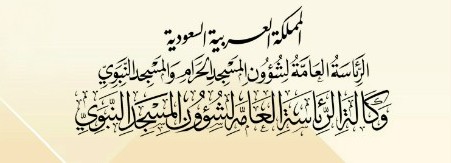 المملكة العربية السعودية
الرئاسة العامة لشؤون المسجد الحرام والمسجد النبوي
وكالة الرئاسة العامة لشؤون المسجد النبوي